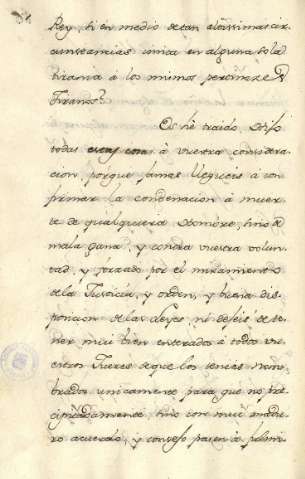 Rey, si en medio de tan altissimas cir
cunstancias única en alguna sola
tirania à los mismos
Tiranos?
Os hè traido
todas estas à vuestra considera
cion, porque jamas llegueis à con
firmar la condenacion à muer
te de qualquiera Hombre, sino de
mala gana, y contra vuestra volun
tad, y forzado por el miramiento
de la Justicia, y orden, y buena dis
posicion de las Leyes, ni dejeis de te
ner mui bien enterados à todos vue
stros Jueces de que los teneis nom
brados unicamente para que no pre
cipitadamente, sino con mui madu
ro acuerdo, y consejo pasen à